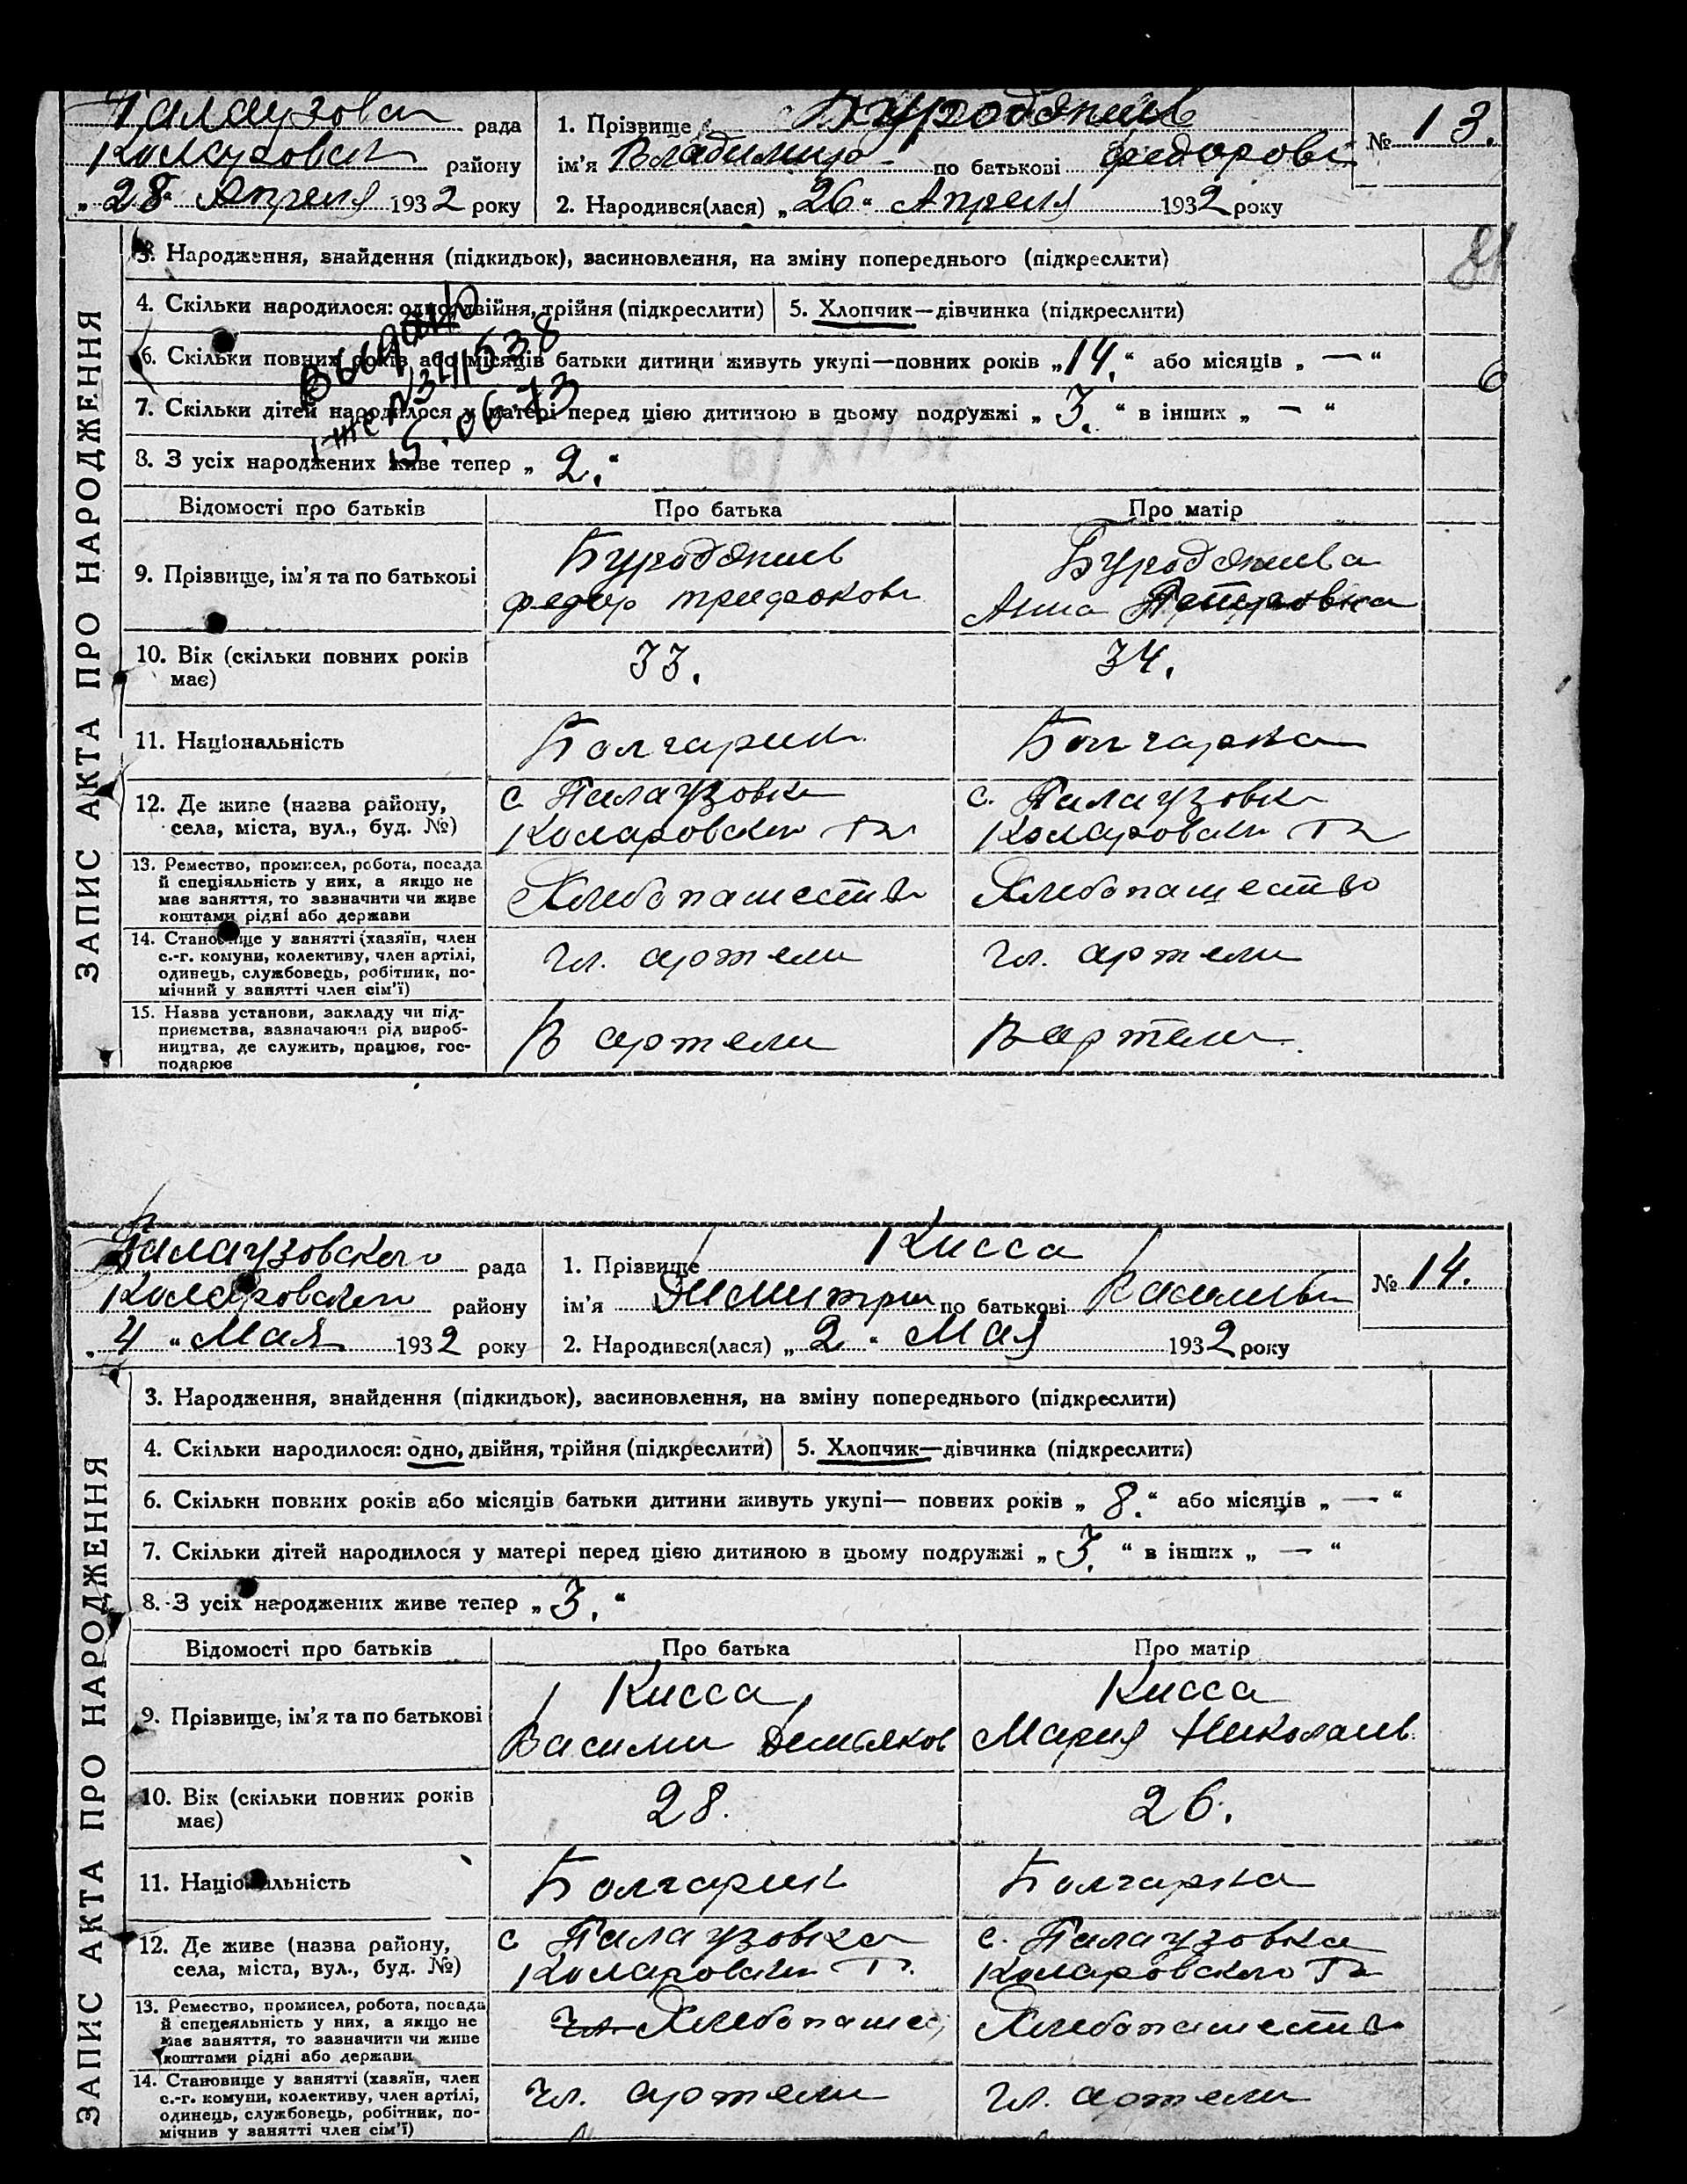 Палаузовск рада
Коларовск району
„28“ Апреля 1932 року
1. Прізвище
ім'я Владимир по батькові Федорови
2. Народився(лася) „26“ Апреля 1932 року
№ 13.
ЗАПИС АКТА ПРО НАРОДЖЕННЯ
3. Народження, знайдення (підкидьок), засиновлення, на зміну попереднього (підкреслити)
4. Скільки народилося: одно, двійня, трійня (підкреслити) 5. Хлопчик—дівчинка (підкреслити)
6. Скільки повних років або місяців батьки дитини живуть укупі—повних років „14.“ або місяців „—“
7. Скільки дітей народилося у матері перед цією дитиною в цьому подружжі „3.“ в інших „—“
8. З усіх народжених живе тепер „2.“
15.06.73
Відомості про батьків Про батька Про матір
9. Прізвище, ім'я та по батькові
Федор Трифонови
Анна Петровна
10. Вік (скільки повних років має) 33. 34.
11. Національність Болгарин Болгарка
12. Де живе (назва району, села, міста, вул., буд. №)
с. Палаузовка
Коларовски Рн
с. Палаузовка
Коларовски Рн
13. Ремество, промисел, робота, посада
й спеціяльність у них, а якщо не
має заняття, то зазначити чи живе
коштами рідні або держави
Хлебопашество Хлебопашество
14. Становище у занятті (хазяїн, член
с.-г. комуни, колективу, член артілі,
одинець, службовець, робітник, по-
мічний у занятті член сім'ї)
чл. артели чл. артели
15. Назва установи, закладу чи під-
приємства, зазначаючи рід вироб-
ництва, де служить, працює, гос-
подарює
В артели В артели
Палаузовского рада
Коларовского району
„4“ Мая 1932 року
1. Прізвище Кисса
ім'я Димитри по батькові Васильеви
2. Народився(лася) „2“ Мая 1932 року
№ 14.
ЗАПИС АКТА ПРО НАРОДЖЕННЯ
3. Народження, знайдення (підкидьок), засиновлення, на зміну попереднього (підкреслити)
4. Скільки народилося: одно, двійня, трійня (підкреслити) 5. Хлопчик—дівчинка (підкреслити)
6. Скільки повних років або місяців батьки дитини живуть укупі— повних років „8.“ або місяців „—“
7. Скільки дітей народилося у матері перед цією дитиною в цьому подружжі „3.“ в інших „—“
8. З усіх народжених живе тепер „3.“
Відомості про батьків Про батька Про матір
9. Прізвище, ім'я та по батькові
Кисса
Василий Демьянов
Кисса
Мария Николаев.
10. Вік (скільки повних років має) 28. 26.
11. Національність Болгарин Болгарка
12. Де живе (назва району, села, міста, вул., буд. №)
с Палаузовка
Коларовски Р.
с. Палаузовка
Коларовского Рн
13. Ремество, промисел, робота, посада
й спецеяльність у них, а якщо не
має заняття, то зазначити чи живе
коштами рідні або держави
чл. Хлебопашес Хлебопашество
14. Становище у занятті (хазяїн, член
с.-г. комуни, колективу, член артілі,
одинець, службовець, робітник, по-
мічнив у занятті член сім'ї)
чл. артели чл. артели